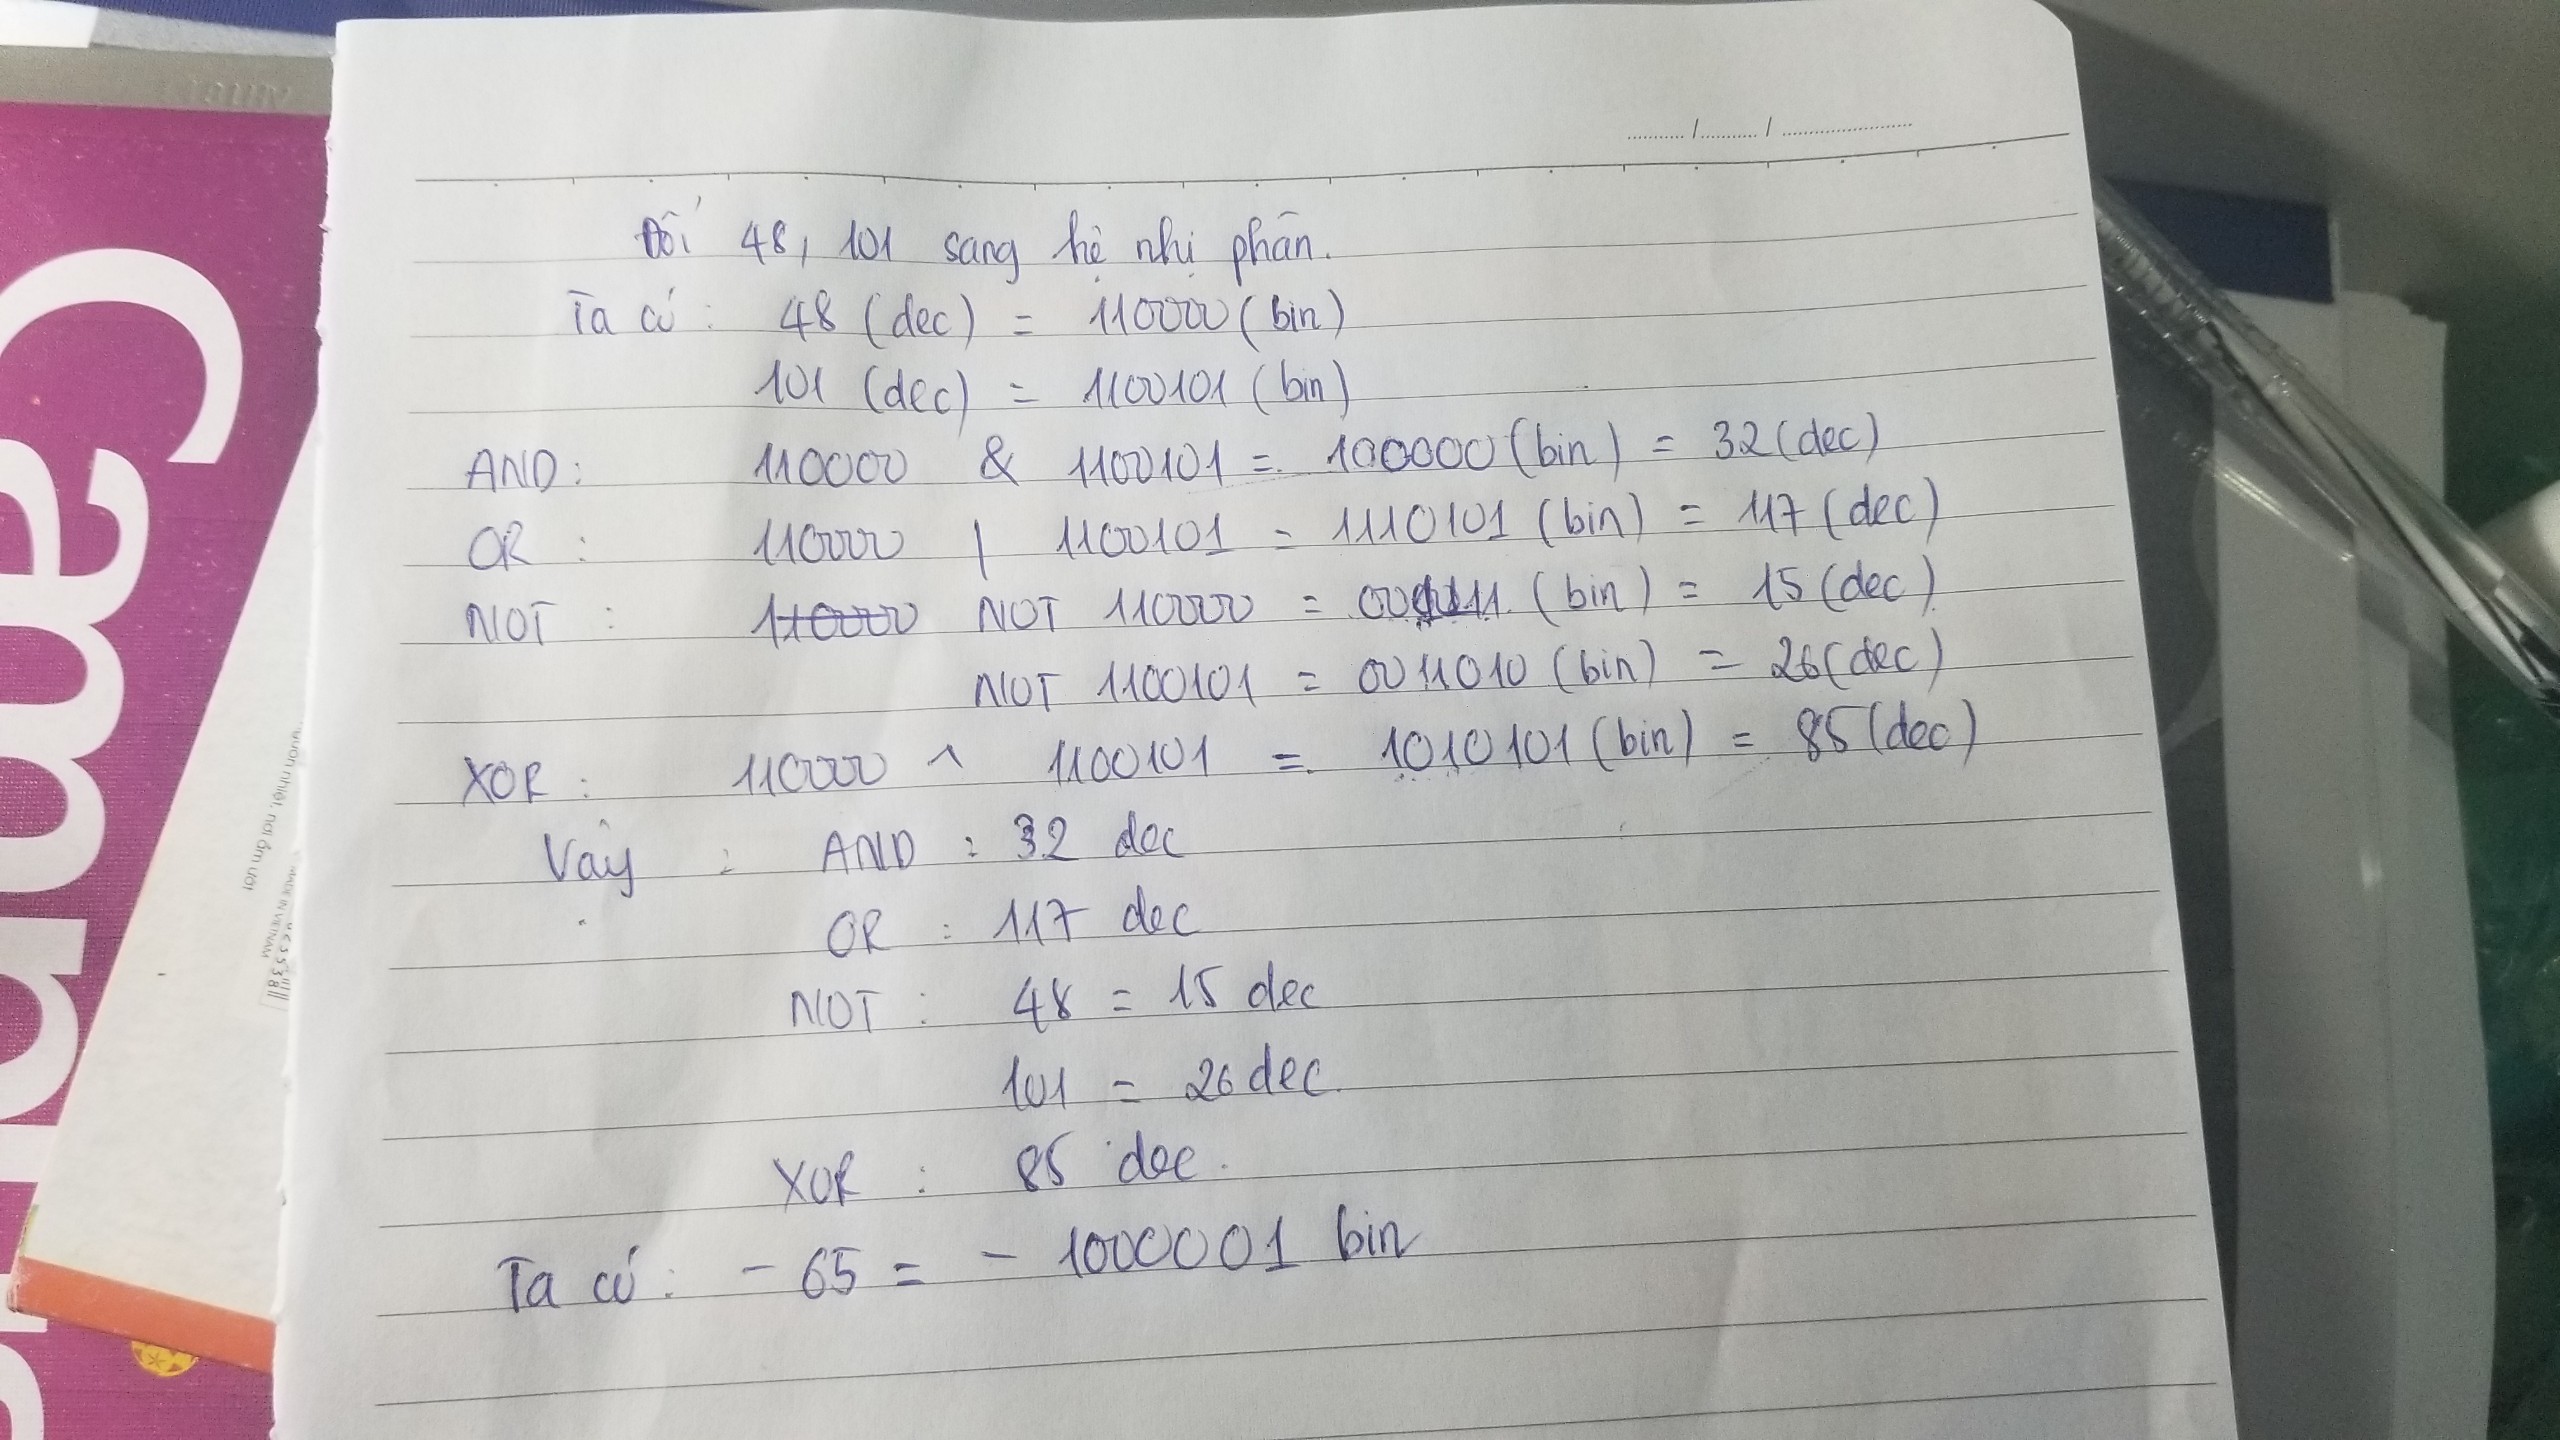 Đổi 48, 101 sang hệ nhị phân.
Ta có: 48 (dec) = 110000 (bin)
101 (dec) = 1100101 (bin)
AND: 110000 & 1100101 = 100000 (bin) = 32 (dec)
OR: 110000 | 1100101 = 1110101 (bin) = 117 (dec)
NOT: 110000 NOT 110000 = 001111 (bin) = 15 (dec)
NOT 1100101 = 0011010 (bin) = 26 (dec)
XOR: 110000 ^ 1100101 = 1010101 (bin) = 85 (dec)
Vậy: AND: 32 dec
OR: 117 dec
NOT: 48 = 15 dec
101 = 26 dec.
XOR: 85 dec.
Ta có: - 65 = - 1000001 bin
Camp
MADE IN VIETNAM